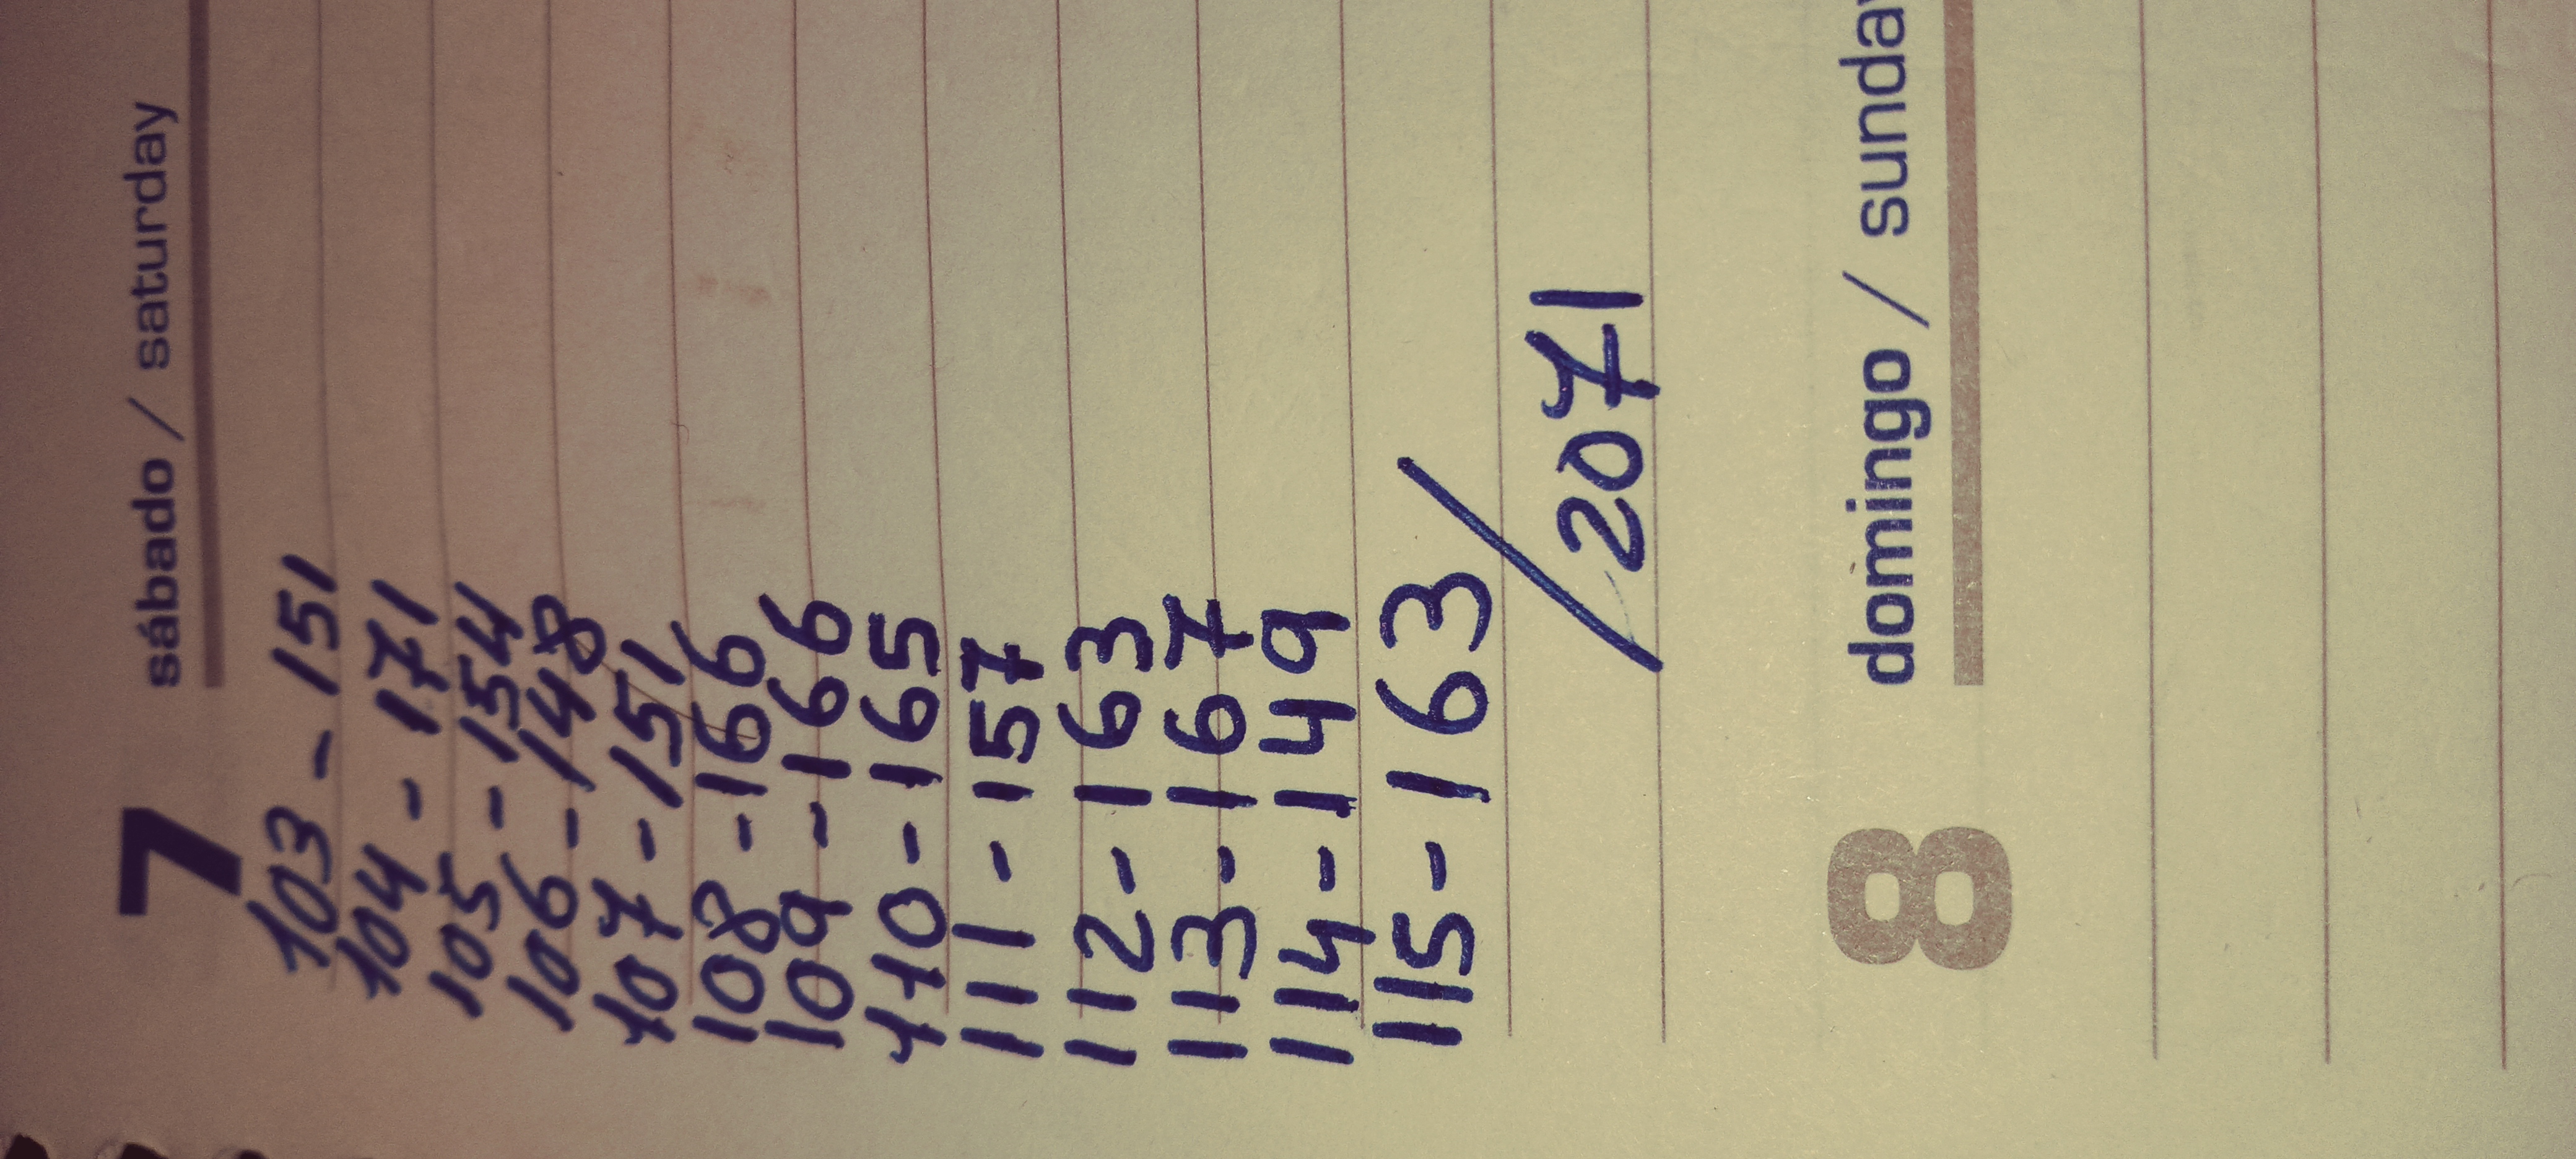 7 sábado / saturday
103 - 151
104 - 171
105 - 154
106 - 148
107 - 151
108 - 166
109 - 166
110 - 165
111 - 157
112 - 163
113 - 167
114 - 149
115 - 163
/2071
8 domingo / sunday